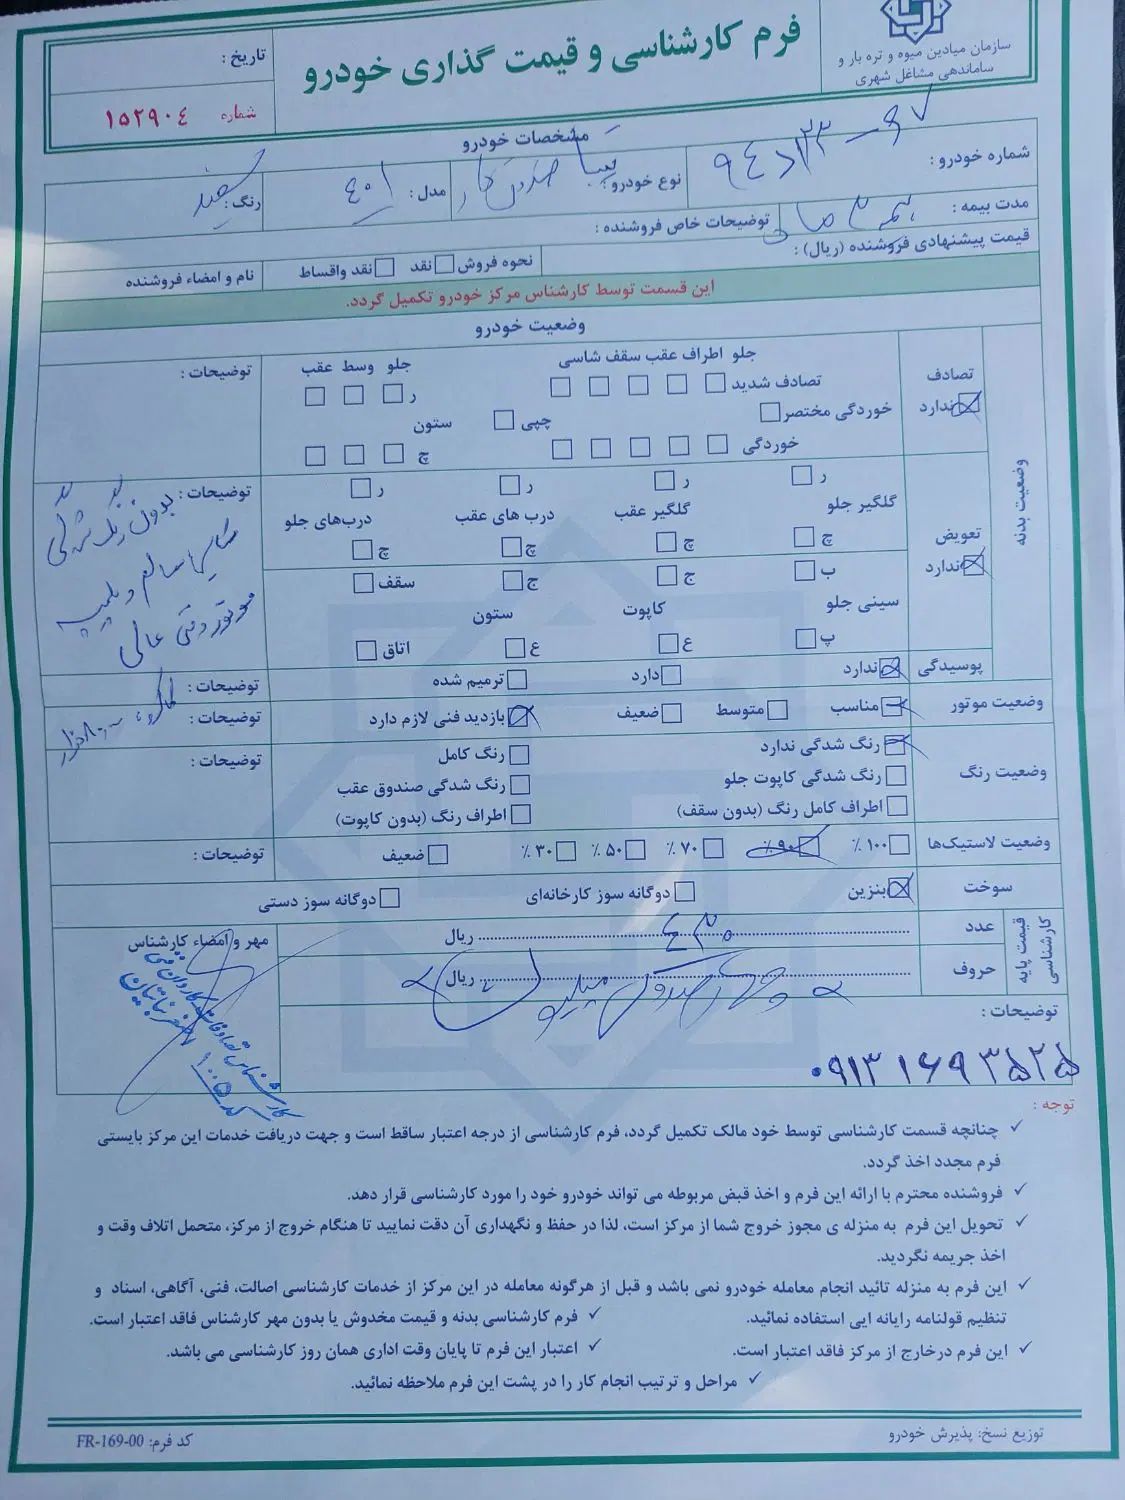 سازمان میادین میوه و تره بار و
ساماندهی مشاغل شهری
فرم کارشناسی و قیمت گذاری خودرو
تاریخ :
شماره ۱۵۲۹۰۴
مشخصات خودرو
شماره خودرو :
نوع خودرو : سایپا
مدل : ۴۰۱
رنگ : سفید
مدت بیمه :
توضیحات خاص فروشنده :
قیمت پیشنهادی فروشنده (ریال) :
نحوه فروش نقد نقد واقساط
نام و امضاء فروشنده
این قسمت توسط کارشناس مرکز خودرو تکمیل گردد.
وضعیت خودرو
وضعیت بدنه
تصادف
ندارد
جلو اطراف عقب سقف شاسی
تصادف شدید
خوردگی مختصر
چپی
خوردگی
جلو وسط عقب
ر
ستون
چ
توضیحات :
تعویض
ندارد
ر ر ر ر
گلگیر جلو گلگیر عقب درب های عقب درب‌های جلو
چ چ چ چ
ب ج ج سقف
سینی جلو کاپوت ستون
پ ع ع اتاق
توضیحات : بدون رنگ
سالم و پلمپ
موتور فنی عالی
پوسیدگی
ندارد دارد ترمیم شده
توضیحات :
وضعیت موتور
مناسب متوسط ضعیف بازدید فنی لازم دارد
توضیحات :
وضعیت رنگ
رنگ شدگی ندارد رنگ کامل
رنگ شدگی کاپوت جلو رنگ شدگی صندوق عقب
اطراف کامل رنگ (بدون سقف) اطراف رنگ (بدون کاپوت)
توضیحات :
وضعیت لاستیک‌ها
۱۰۰ ٪ ۹۰ ٪ ۷۰ ٪ ۵۰ ٪ ۳۰ ٪ ضعیف
توضیحات :
سوخت
بنزین دوگانه سوز کارخانه‌ای دوگانه سوز دستی
قیمت پایه کارشناسی
عدد ۴۳۰ ریال
حروف ریال
مهر و امضاء کارشناس
توضیحات :
۰۹۱۳۱۶۹۳۵۲۵
توجه :
✓ چنانچه قسمت کارشناسی توسط خود مالک تکمیل گردد، فرم کارشناسی از درجه اعتبار ساقط است و جهت دریافت خدمات این مرکز بایستی
فرم مجدد اخذ گردد.
✓ فروشنده محترم با ارائه این فرم و اخذ قبض مربوطه می تواند خودرو خود را مورد کارشناسی قرار دهد.
✓ تحویل این فرم به منزله ی مجوز خروج شما از مرکز است، لذا در حفظ و نگهداری آن دقت نمایید تا هنگام خروج از مرکز، متحمل اتلاف وقت و
اخذ جریمه نگردید.
✓ این فرم به منزله تائید انجام معامله خودرو نمی باشد و قبل از هرگونه معامله در این مرکز از خدمات کارشناسی اصالت، فنی، آگاهی، اسناد و
تنظیم قولنامه رایانه ایی استفاده نمائید.
✓ فرم کارشناسی بدنه و قیمت مخدوش یا بدون مهر کارشناس فاقد اعتبار است.
✓ این فرم درخارج از مرکز فاقد اعتبار است.
✓ اعتبار این فرم تا پایان وقت اداری همان روز کارشناسی می باشد.
✓ مراحل و ترتیب انجام کار را در پشت این فرم ملاحظه نمائید.
توزیع نسخ: پذیرش خودرو
کد فرم: FR-169-00